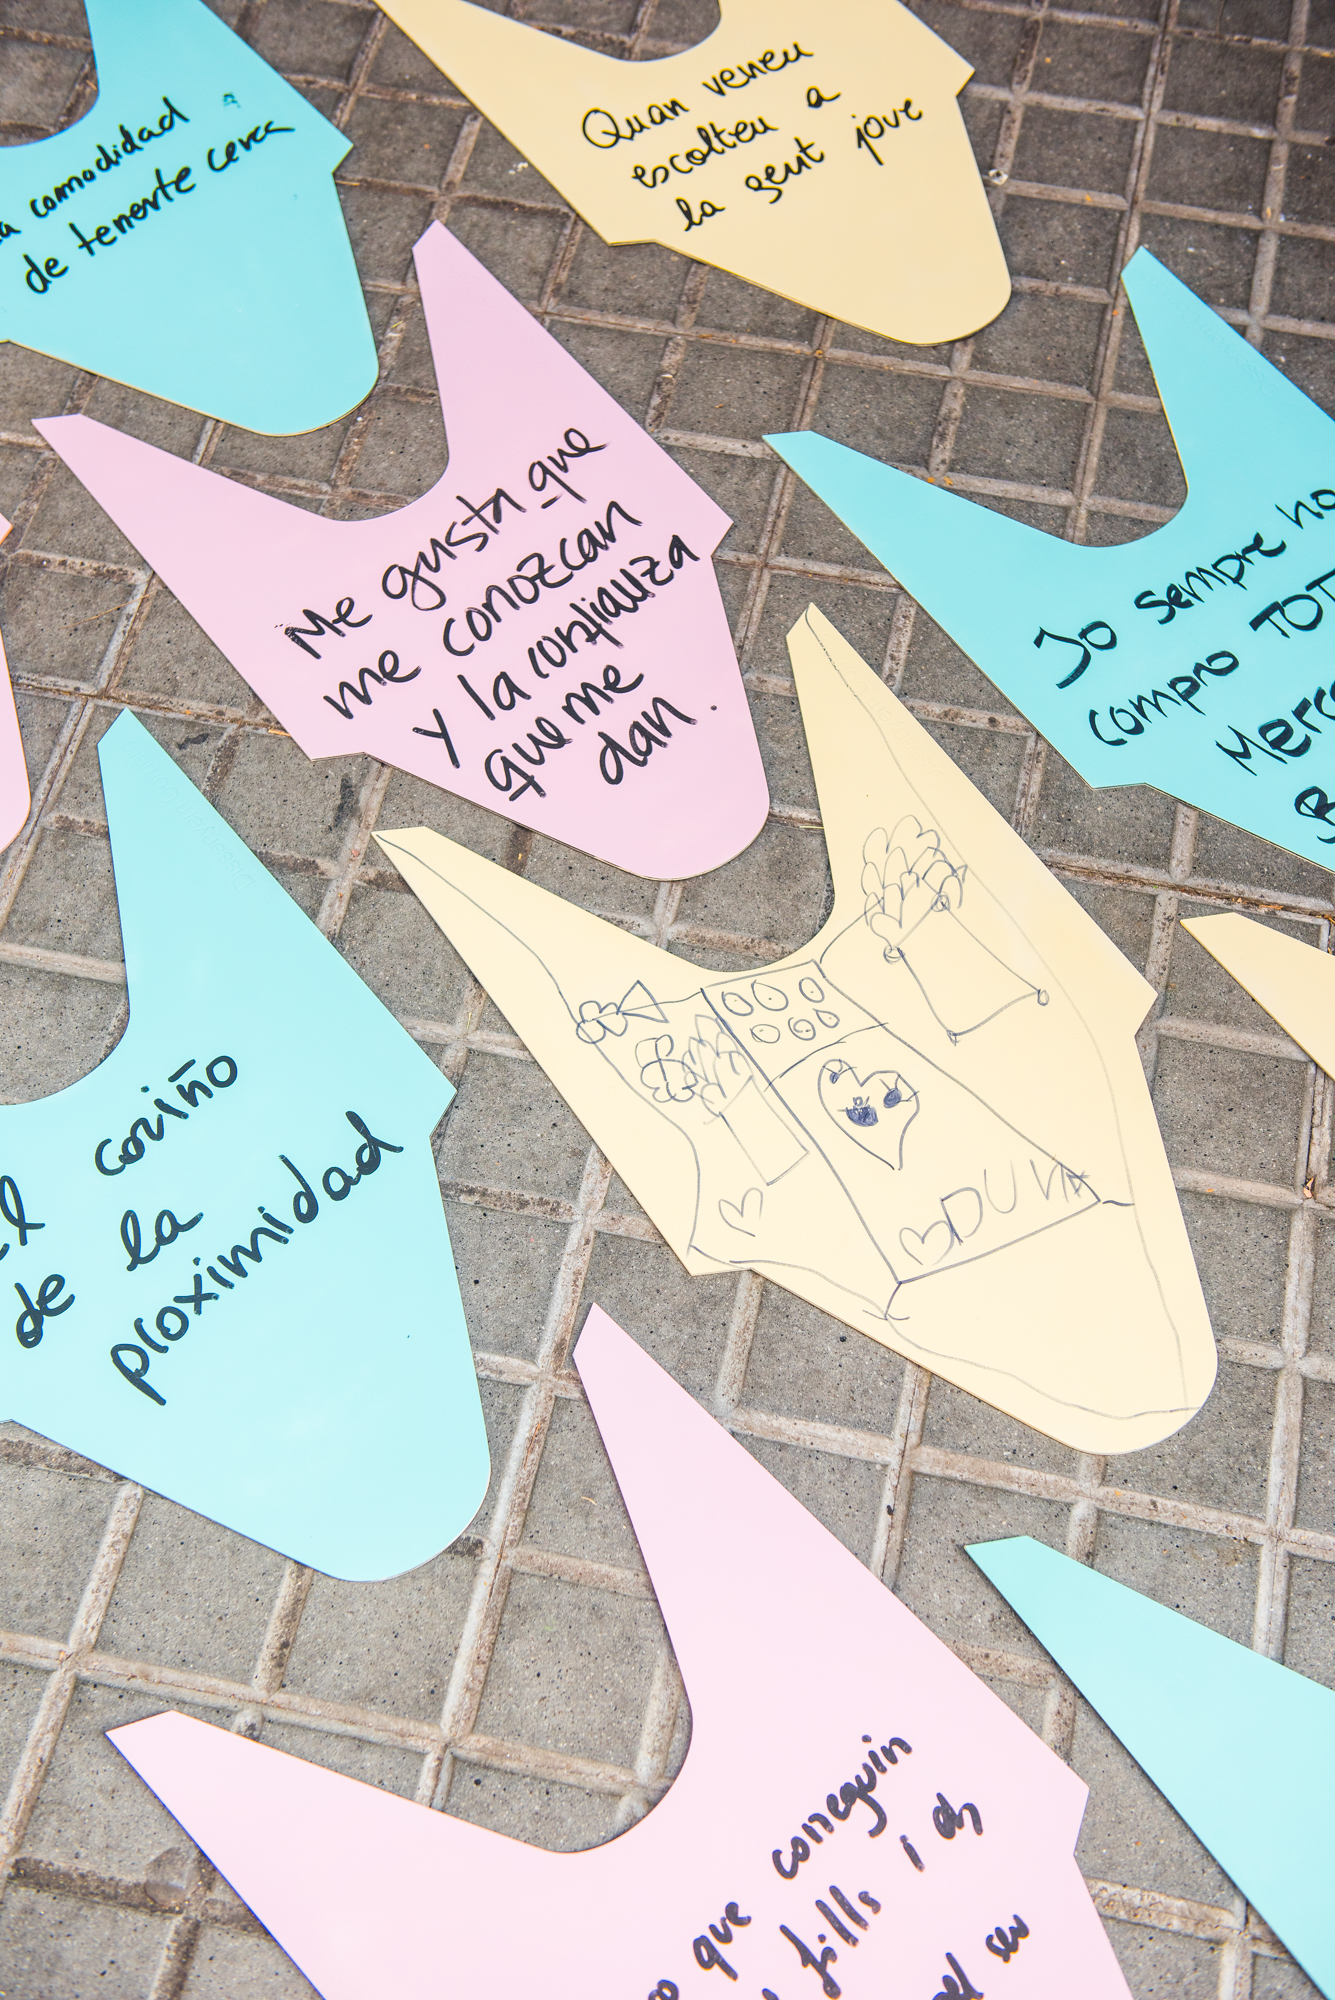 comodidad
de tenerte cerca
Quan veneu
escolteu a
la gent jove
Me gusta que
me conozcan
y la confianza
que me
dan.
Jo sempre ho
compro TOT
Merc
B
El cariño
de la
proximidad
DUNA
que coneguin
fills i
pel seu